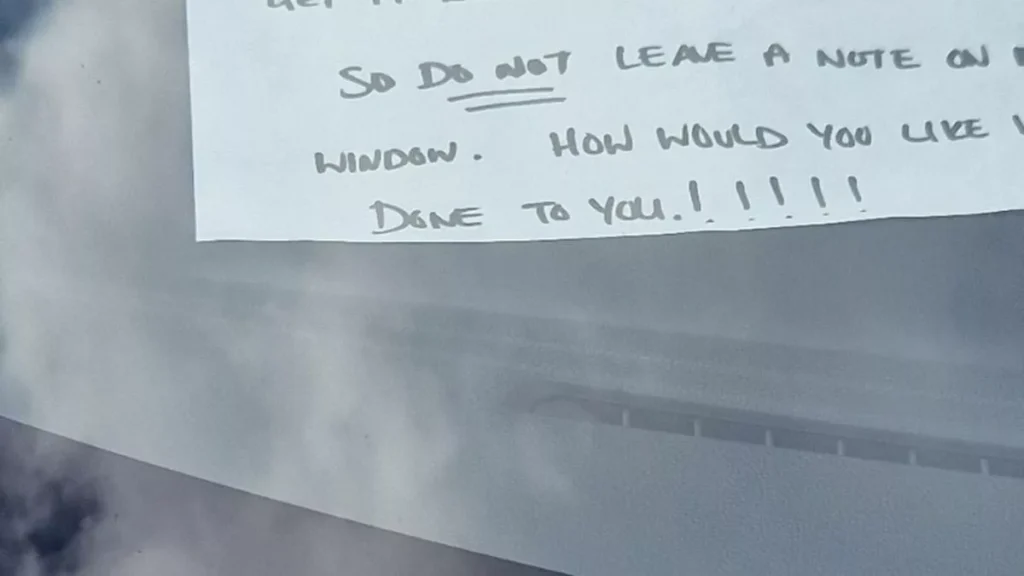 SO DO NOT LEAVE A NOTE ON
WINDOW. HOW WOULD YOU LIKE
DONE TO YOU.! ! ! ! !